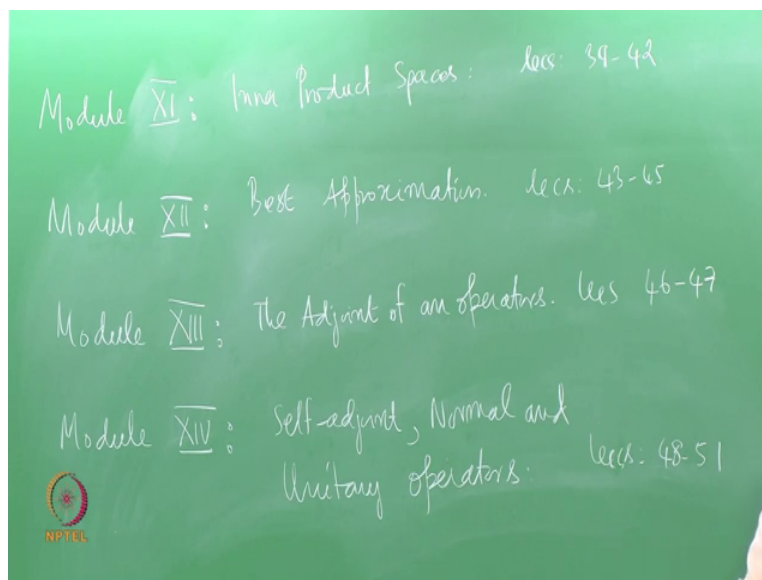 Module XI: Inner Product Spaces: lecs: 39-42
Module XII: Best Approximation. lecs: 43-45
Module XIII: The Adjoint of an operators. lecs 46-47
Module XIV: Self-adjoint, Normal and
Unitary operators: lecs: 48-51
NPTEL